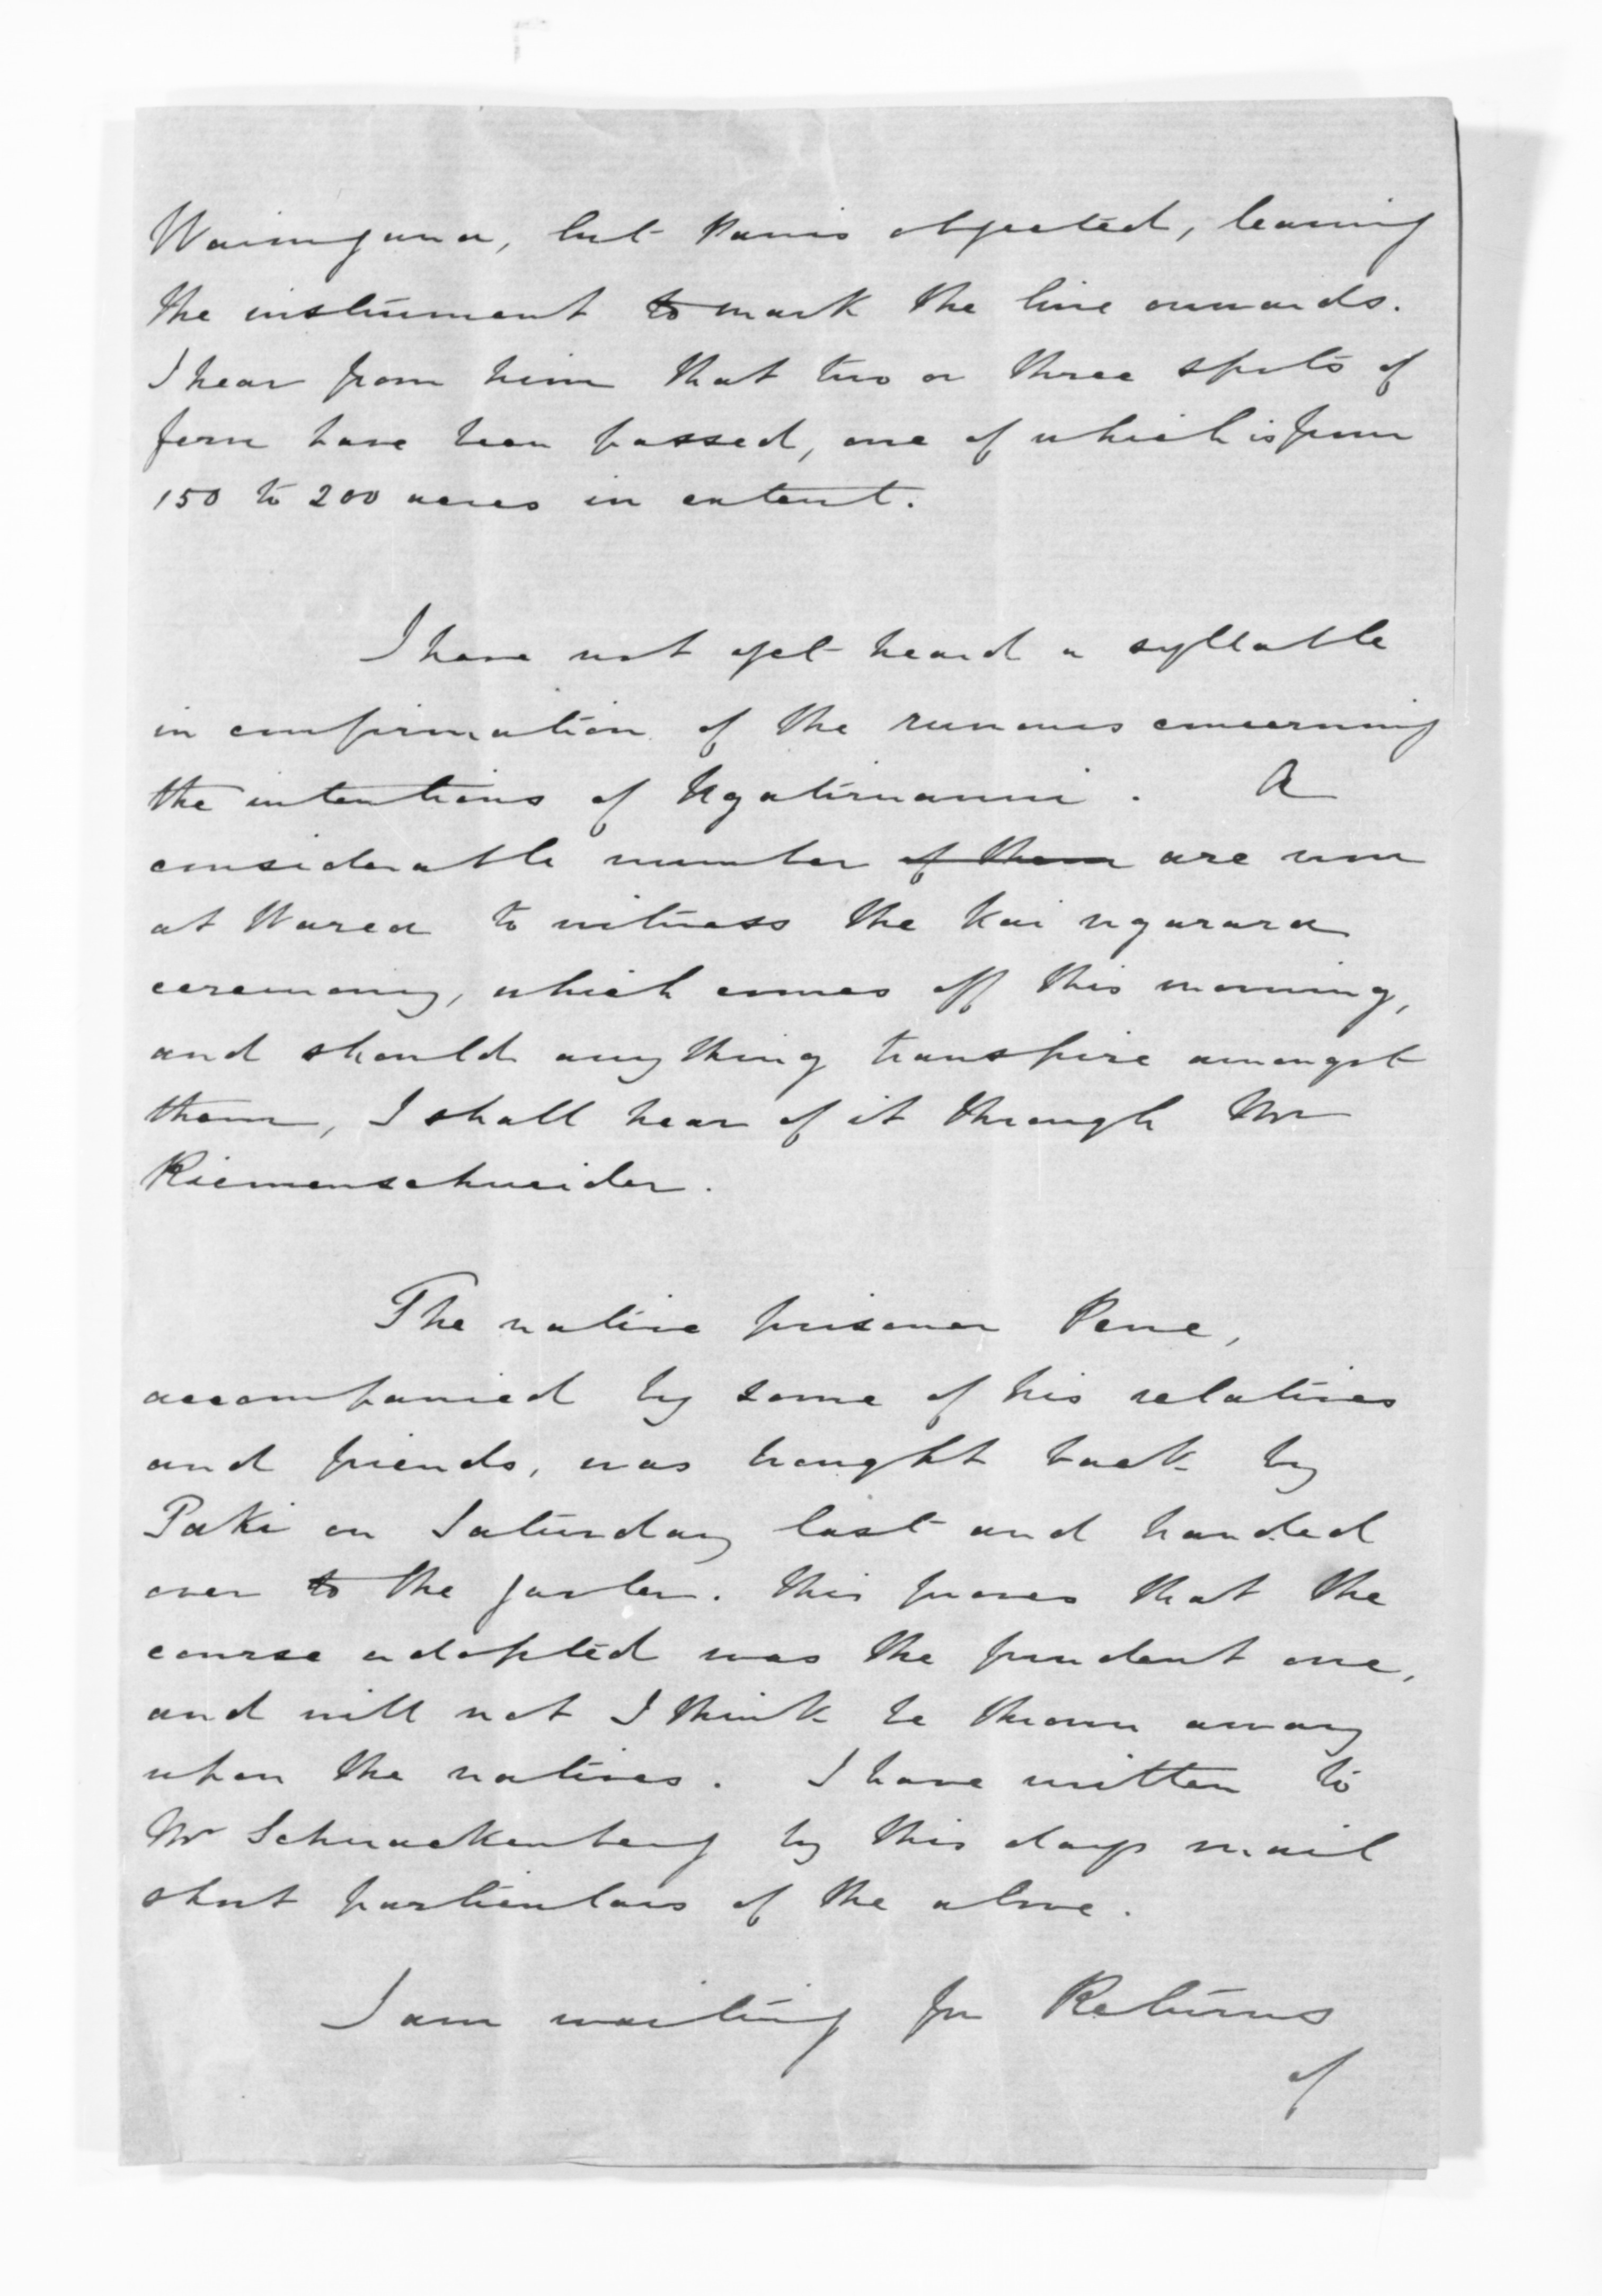 Waingana, but Parris objected, leaving
the instrument to mark the line onwards.
I hear from him that two or three spots of
fern have been passed, one of which is from
150 to 200 acres in extent.
I have not yet heard a syllable
in confirmation of the rumours concerning
the intentions of Ngatiruanui. A
considerable number of them are now
at Warea to witness the Kai ngarara
ceremony, which comes off this morning,
and should anything transpire amongst
them, I shall hear of it through Mr
Riemenschneider.
The native prisoner Pene,
accompanied by some of his relatives
and friends, was brought back by
Paki on Saturday last and handed
over to the jailer. This proves that the
course adopted was the prudent one,
and will not I think be thrown away
upon the natives. I have written to
Mr Schnackenberg by this days mail
short particulars of the above.
I am waiting for Returns
of